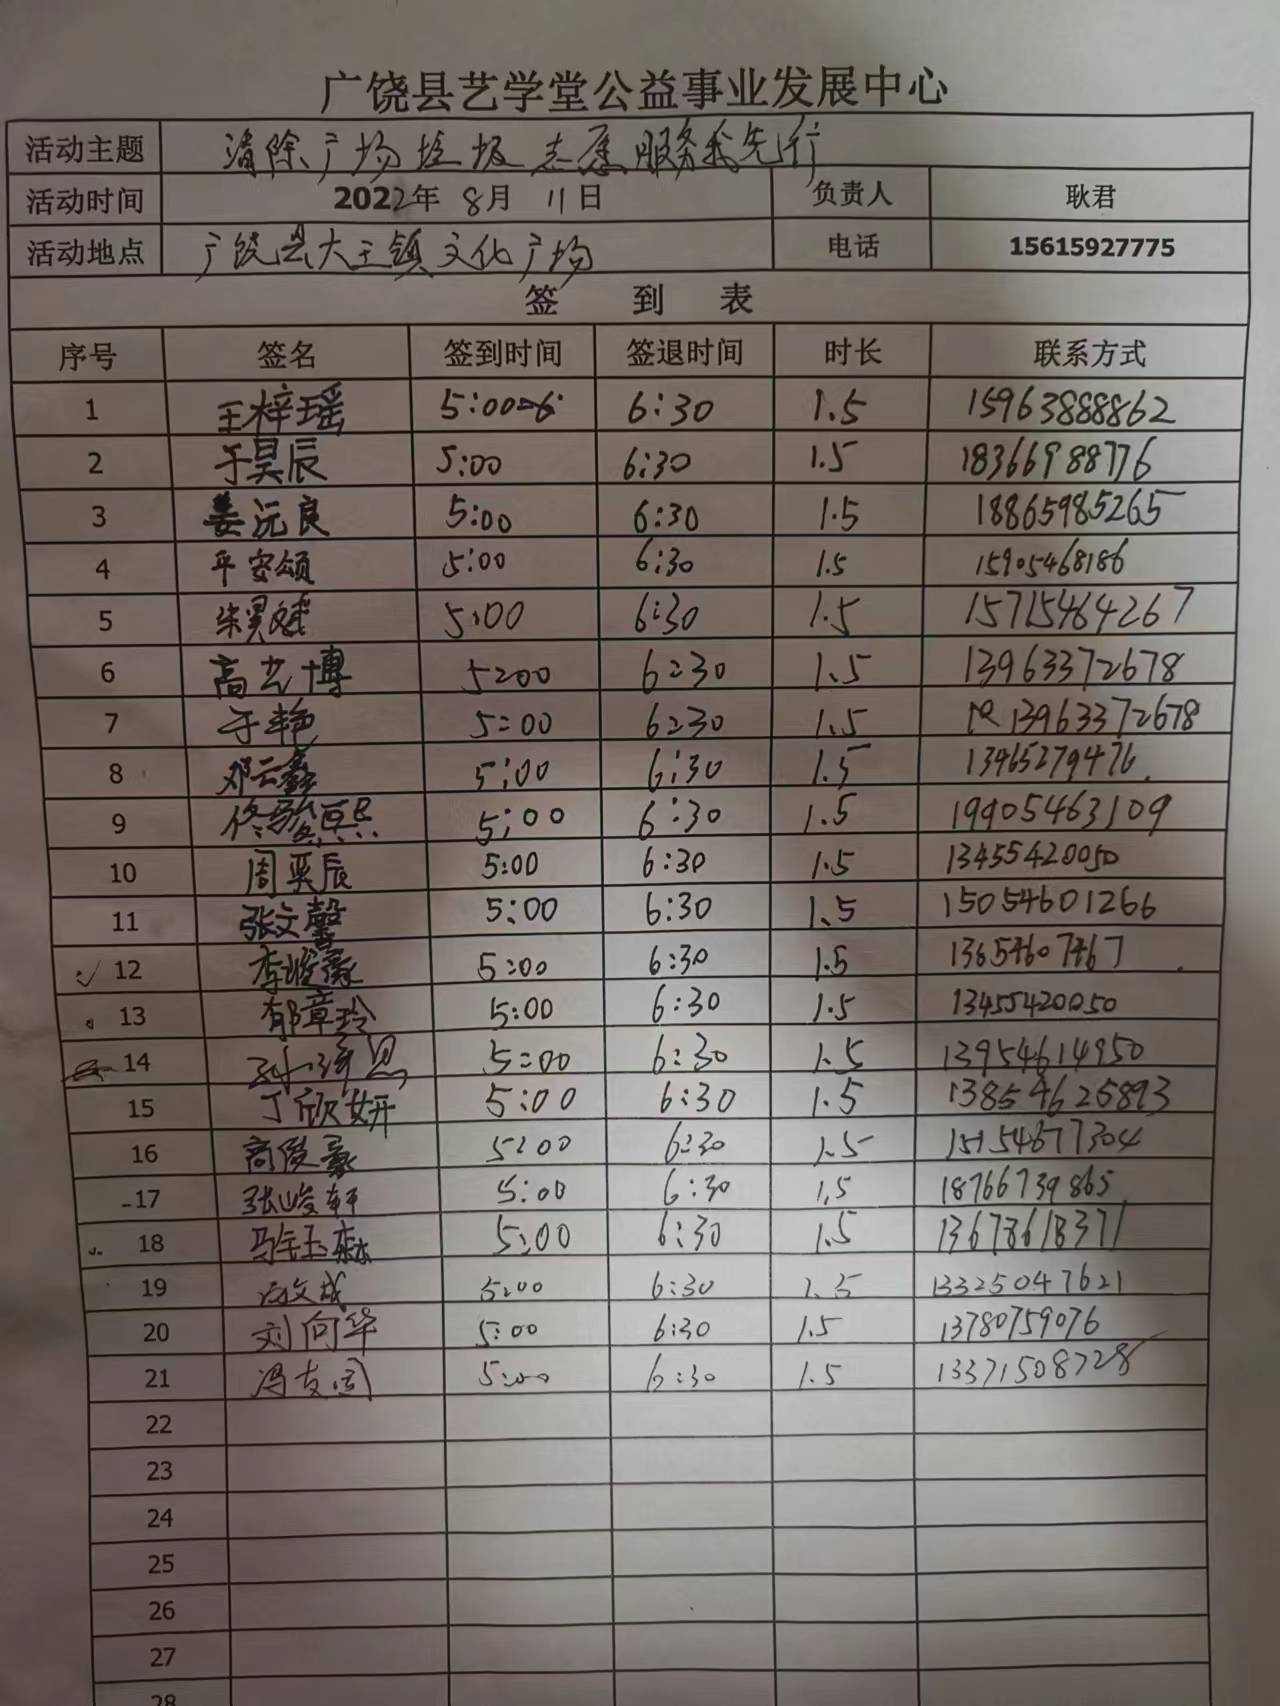 广饶县艺学堂公益事业发展中心
活动主题 清除广场垃圾 志愿服务我先行
活动时间 2022年 8月 11日 负责人 耿君
活动地点 广饶县大王镇文化广场 电话 15615927775
签 到 表
序号 签名 签到时间 签退时间 时长 联系方式
1 王梓瑶 5:00 6:30 1.5 15963888862
2 于昊辰 5:00 6:30 1.5 18366988776
3 姜沅良 5:00 6:30 1.5 18865985265
4 平安颂 5:00 6:30 1.5 15905468186
5 5:00 6:30 1.5 15715464267
6 高艺博 5:00 6:30 1.5 13963372678
7 于艳 5:00 6:30 1.5 13963372678
8 邓云鑫 5:00 6:30 1.5 13465279476
9 佟 熙 5:00 6:30 1.5 19905463109
10 周奕辰 5:00 6:30 1.5 13455420050
11 张文馨 5:00 6:30 1.5 15054601266
12 李峻豪 5:00 6:30 1.5 13654607467
13 郁章玲 5:00 6:30 1.5 13455420050
14 5:00 6:30 1.5 13954614950
15 丁欣妍 5:00 6:30 1.5 13854625893
16 商俊豪 5:00 6:30 1.5 15154677304
17 张峻轩 5:00 6:30 1.5 18766739865
18 5:00 6:30 1.5 13678618371
19 5:00 6:30 1.5 13325047621
20 刘向华 5:00 6:30 1.5 13780759076
21 冯友 5:00 6:30 1.5 13371508728
22
23
24
25
26
27
28